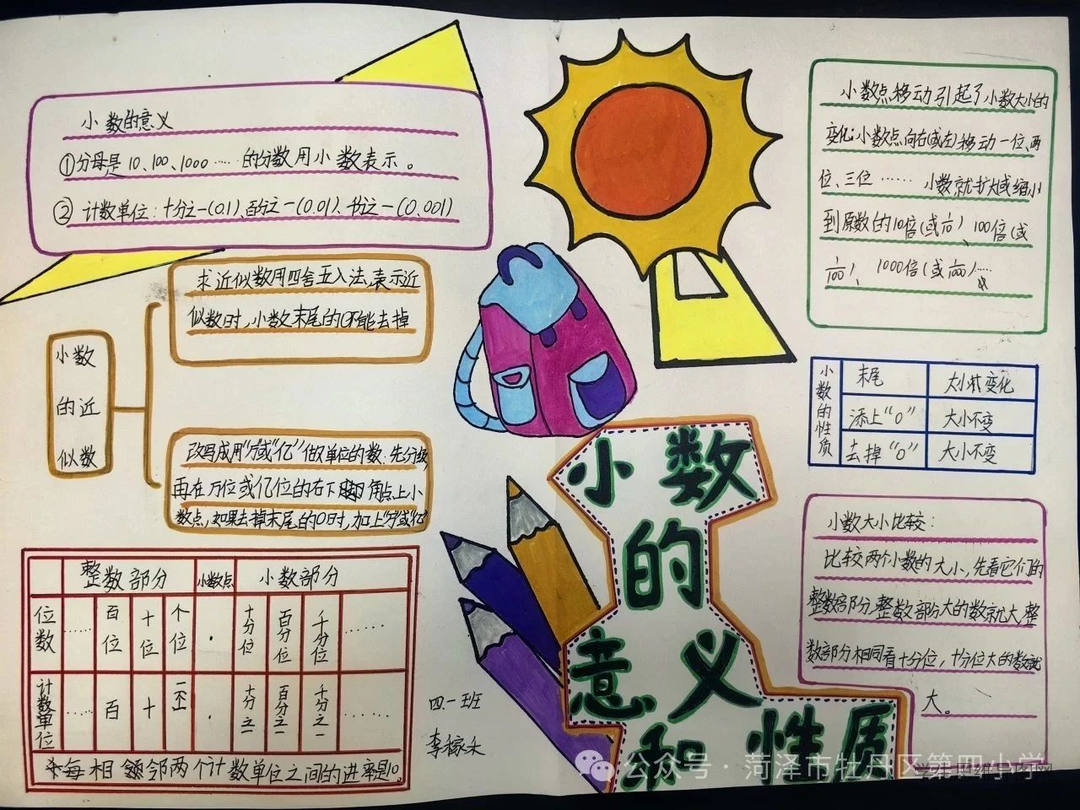 小数的意义
①分母是10、100、1000……的分数用小数表示。
②计数单位:十分之一(0.1)、百分之一(0.01)、千分之一(0.001)
求近似数用四舍五入法,表示近
似数时,小数末尾的0不能去掉
小数
的近
似数
改写成用"万"或"亿"做单位的数:先分级,
再在万位或亿位的右下角点上小
数点,如果去掉末尾的0时,加上"万"或"亿"
整数部分 小数点 小数部分
位数 …… 百位 十位 个位 . 十分位 百分位 千分位 ……
计数单位 …… 百 十 一(个) . 十分之一 百分之一 千分之一 ……
每相邻两个计数单位之间的进率是10。
四·一班
小数点移动引起了小数大小的
变化:小数点向右(或左)移动一位、两
位、三位……小数就扩大或缩小
到原数的10倍(或1/10)、100倍(或
1/100)、1000倍(或1/1000)……
小数的性质
末尾 大小变化
添上"0" 大小不变
去掉"0" 大小不变
小数大小比较:
比较两个小数的大小,先看它们的
整数部分,整数部分大的数就大,整
数部分相同看十分位,十分位大的数就
大。
小数
的
意义
和性质
公众号·菏泽市牡丹区第四小学